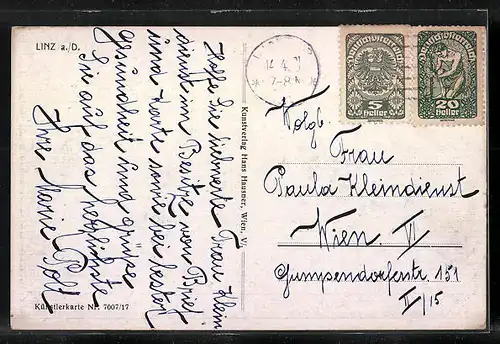 LINZ a./D.
Hoffe Sie liebwerte Frau Klein
dinst im Besitze von Brief
und Karte sowie bei bester
Gesundheit und grüße
Sie auf das herzlichste
Ihre Marie
Künstlerkarte Nr. 7007/17
Kunstverlag Hans Hausner, Wien, V/
14. 4.
7-8
Deutschösterreich
5
Heller
Deutschösterreich
20
Heller
Frau
Paula Kleindienst
Wien. VI
Gumpendorferstr. 151
II/15